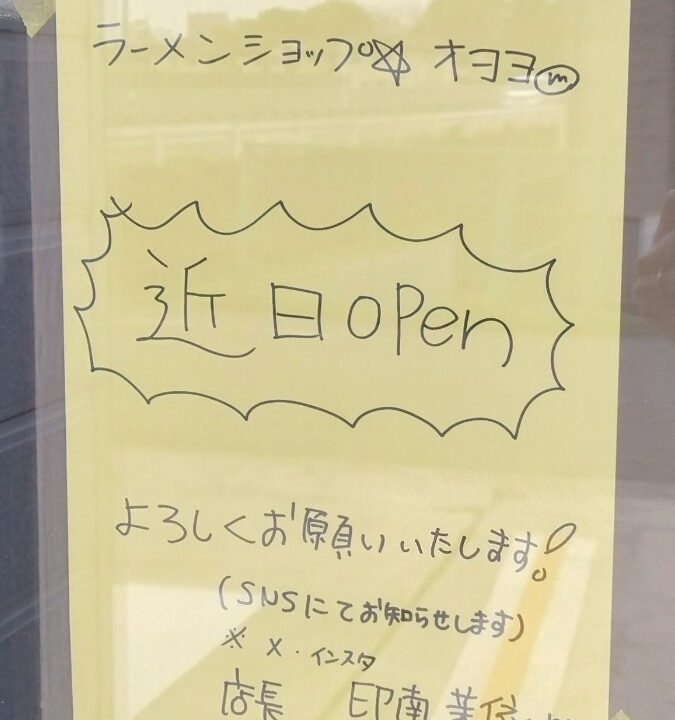 ラーメンショップ☆ オヨヨ㋱
近日open
よろしくお願いいたします!
(SNSにてお知らせします)
※ X・インスタ
店長 印南